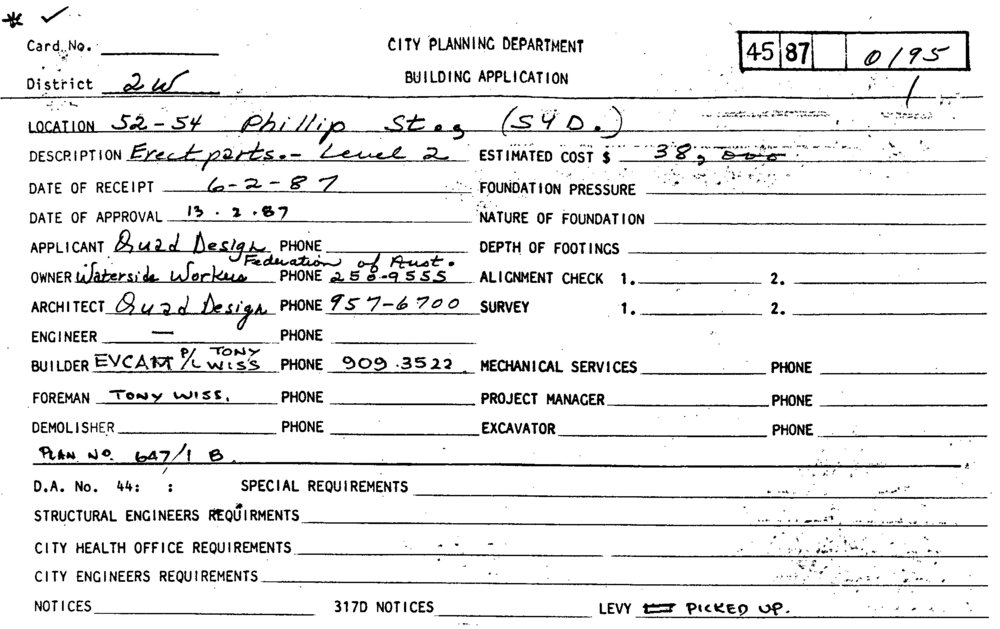 Card No. CITY PLANNING DEPARTMENT 45 87 0195
District 2W BUILDING APPLICATION
LOCATION 52-54 Phillip St., (SYD.)
DESCRIPTION Erect parts.- Level 2 ESTIMATED COST $ 38,000
DATE OF RECEIPT 6-2-87 FOUNDATION PRESSURE
DATE OF APPROVAL 13.2.87 NATURE OF FOUNDATION
APPLICANT Quad Design PHONE DEPTH OF FOOTINGS
Federation of Aust.
OWNER Waterside Workers PHONE 258-9555 ALIGNMENT CHECK 1. 2.
ARCHITECT Quad Design PHONE 957-6700 SURVEY 1. 2.
ENGINEER — PHONE
BUILDER EVCAM P/L TONY WISS PHONE 909.3522 MECHANICAL SERVICES PHONE
FOREMAN TONY WISS. PHONE PROJECT MANAGER PHONE
DEMOLISHER PHONE EXCAVATOR PHONE
PLAN NO. 647/1 B
D.A. No. 44: : SPECIAL REQUIREMENTS
STRUCTURAL ENGINEERS REQUIRMENTS
CITY HEALTH OFFICE REQUIREMENTS
CITY ENGINEERS REQUIREMENTS
NOTICES 317D NOTICES LEVY PICKED UP.